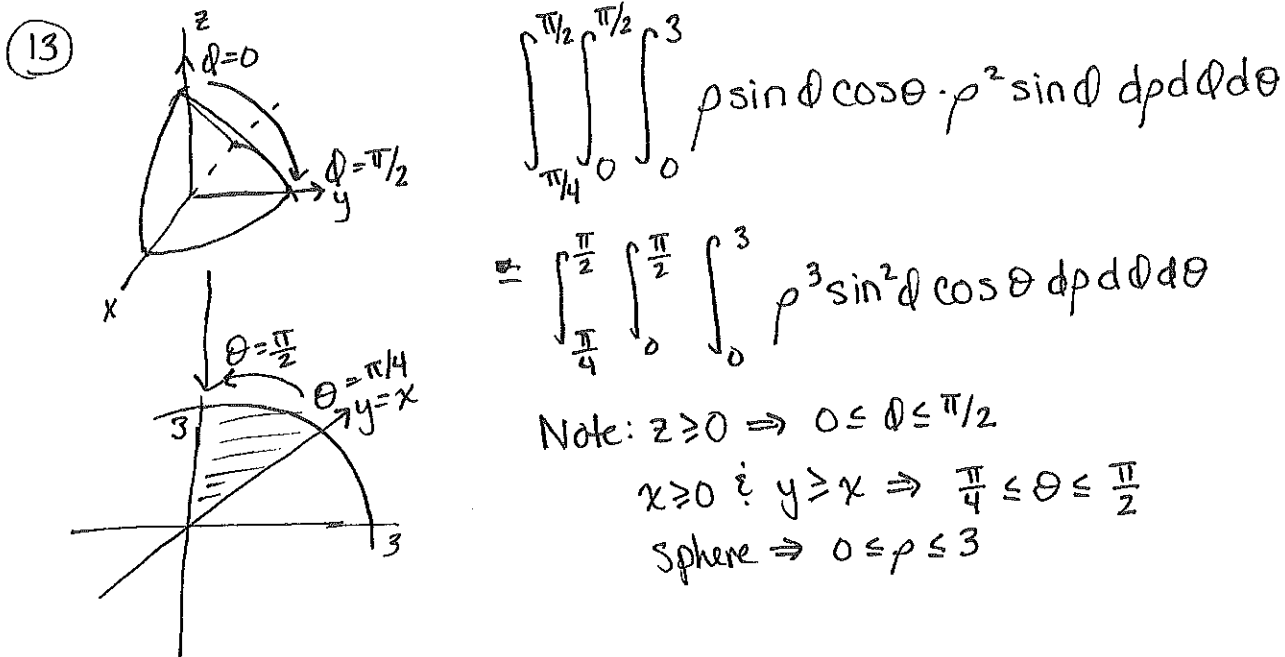 13
z
ϕ=0
ϕ=π/2
y
x
θ=π/2
θ=π/4
y=x
3
3
∫_{π/4}^{π/2} ∫_0^{π/2} ∫_0^3 ρsinϕcosθ·ρ²sinϕ dρdϕdθ
= ∫_{π/4}^{π/2} ∫_0^{π/2} ∫_0^3 ρ³sin²ϕcosθ dρdϕdθ
Note: z≥0 ⇒ 0≤ϕ≤π/2
x≥0 & y≥x ⇒ π/4≤θ≤π/2
sphere ⇒ 0≤ρ≤3